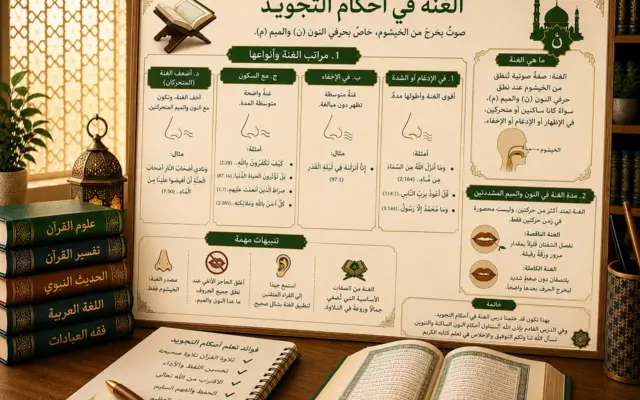 الغنة في أحكام التجويد
صوتٌ يخرج من الخيشوم، خاصٌ بحرفي النون (ن) والميم (م).
1. مراتب الغنة وأنواعها
1. في الإدغام أو الشدة
أقوى الغنة وأطولها مدة.
أمثلة:
وَمَا أَنزَلَ اللهُ مِنَ السَّمَاءِ
مِن مَّاءٍ.. (2:164)
قُلْ أَعُوذُ بِرَبِّ النَّاسِ. (114:1)
وَمَا مُحَمَّدٌ إِلَّا رَسُولٌ.. (3:144)
ب. في الإخفاء
غنةٌ متوسطة
تظهر دون مبالغة.
مثال:
إِنَّا أَنزَلْنَاهُ فِي لَيْلَةِ الْقَدْرِ
(97:1)
ج. مع السكون
غنةٌ واضحة
متوسطة المدة.
أمثلة:
كَيْفَ تَكْفُرُونَ بِاللهِ.. (2:28)
بَلْ تُؤْثِرُونَ الْحَيَاةَ الدُّنْيَا.
صِرَاطَ الَّذِينَ أَنْعَمْتَ عَلَيْهِمْ.
كُلٌّ آمَنَ بِاللهِ وَمَلَائِكَتِهِ..
د. أضعف الغنة
(المتحركان)
أخف الغنة، وتكون
مع النون والميم المتحركتين.
مثال:
وَنَادَىٰ أَصْحَابُ النَّارِ أَصْحَابَ
الْجَنَّةِ أَنْ أَفِيضُوا عَلَيْنَا مِنَ
الْمَاءِ.. (7:50)
ما هي الغنة
الغنة: صفةٌ صوتية تُنطق
من الخيشوم عند نطق
حرفي النون (ن) والميم (م)،
سواءً كانا ساكنين أو متحركين،
في الإظهار أو الإدغام أو الإخفاء.
الخيشوم
ن
2. مدة الغنة في النون والميم المشددتين
الغنة تمتد أكثر من حركتين، وليست محصورة
في زمن حركتين فقط.
الغنة الناقصة:
تفصل الشفتان قليلًا بمقدار
مرور ورقة رقيقة
الغنة الكاملة:
يلتصقان دون ضغط شديد
ليخرج الحرف بعدها واضحاً.
تنبيهات مهمة
الغنة من الصفات
الأساسية التي تُضفي
جمالًا وروعة في التلاوة.
استمع جيدًا
إلى القراء المتقنين
لتطبيق الغنة بشكل صحيح.
أغلق الحاجز الأنفي عند
نطق جميع الحروف
ما عدا النون والميم.
مصدر الغنة:
الخيشوم فقط.
خاتمة
بهذا نكون قد ختمنا درس الغنة في أحكام التجويد.
وفي الدرس القادم بإذن الله أحكام النون الساكنة والتنوين.
نسأل الله لنا ولكم التوفيق والإخلاص في تعلم كتابه الكريم.
علوم القرآن
تفسير القرآن
الحديث النبوي
اللغة العربية
فقه العبادات
فوائد تعلم أحكام التجويد
تلاوة القرآن تلاوة صحيحة
تحسين اللفظ والأداء
الاقتراب من الله تعالى
الحفظ والفهم السليم